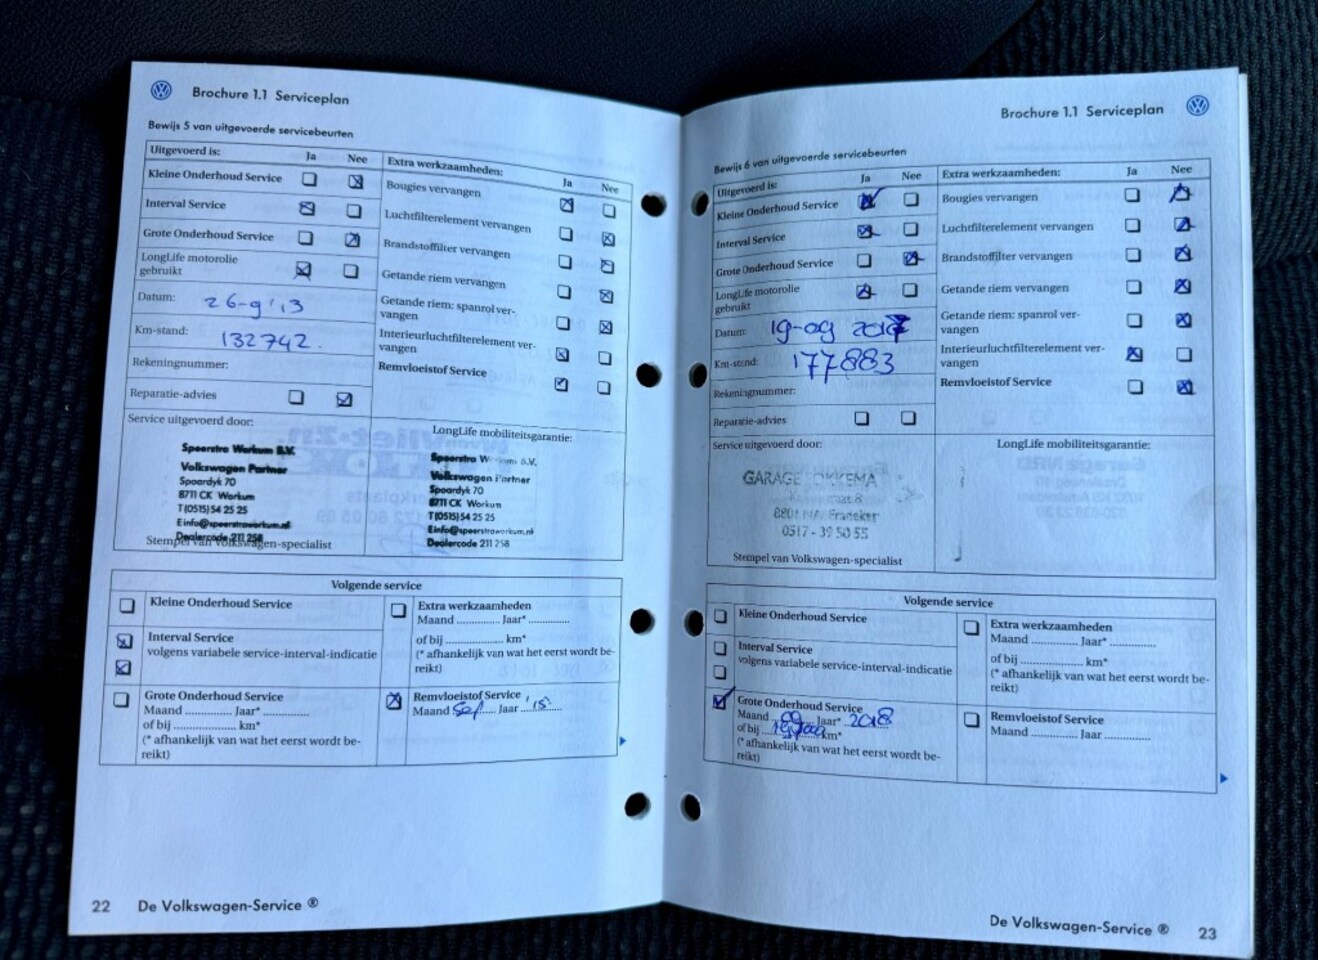 Brochure 1.1 Serviceplan
Bewijs 5 van uitgevoerde servicebeurten
Uitgevoerd is: Ja Nee
Kleine Onderhoud Service
Interval Service
Grote Onderhoud Service
LongLife motorolie
gebruikt
Datum: 26-9'13
Km-stand: 132742.
Rekeningnummer:
Reparatie-advies
Extra werkzaamheden: Ja Nee
Bougies vervangen
Luchtfilterelement vervangen
Brandstoffilter vervangen
Getande riem vervangen
Getande riem: spanrol ver-
vangen
Interieurluchtfilterelement ver-
vangen
Remvloeistof Service
Service uitgevoerd door:
Speerstra Workum B.V.
Volkswagen Partner
Spoardyk 70
8711 CK Workum
T(0515)54 25 25
E info@speerstraworkum.nl
Dealercode 211 258
Stempel van Volkswagen-specialist
LongLife mobiliteitsgarantie:
Speerstra B.V.
Volkswagen Partner
Spoardyk 70
8711 CK Workum
T(0515)54 25 25
E info@speerstraworkum.nl
Dealercode 211 258
Volgende service
Kleine Onderhoud Service
Interval Service
volgens variabele service-interval-indicatie
Grote Onderhoud Service
Maand .............. Jaar* ..............
of bij .................... km*
(* afhankelijk van wat het eerst wordt be-
reikt)
Extra werkzaamheden
Maand ............. Jaar* .............
of bij .................... km*
(* afhankelijk van wat het eerst wordt be-
reikt)
Remvloeistof Service
Maand Sep Jaar '15
22 De Volkswagen-Service ®
Brochure 1.1 Serviceplan
Bewijs 6 van uitgevoerde servicebeurten
Uitgevoerd is: Ja Nee
Kleine Onderhoud Service
Interval Service
Grote Onderhoud Service
LongLife motorolie
gebruikt
Datum: 19-09 2017
Km-stand: 177883
Rekeningnummer:
Reparatie-advies
Extra werkzaamheden: Ja Nee
Bougies vervangen
Luchtfilterelement vervangen
Brandstoffilter vervangen
Getande riem vervangen
Getande riem: spanrol ver-
vangen
Interieurluchtfilterelement ver-
vangen
Remvloeistof Service
Service uitgevoerd door:
GARAGE
Franeker
0517 - 39 50 55
Stempel van Volkswagen-specialist
LongLife mobiliteitsgarantie:
Volgende service
Kleine Onderhoud Service
Interval Service
volgens variabele service-interval-indicatie
Grote Onderhoud Service
Maand 09 Jaar* 2018
of bij km*
(* afhankelijk van wat het eerst wordt be-
reikt)
Extra werkzaamheden
Maand ............. Jaar* .............
of bij .................... km*
(* afhankelijk van wat het eerst wordt be-
reikt)
Remvloeistof Service
Maand ............. Jaar .............
De Volkswagen-Service ® 23